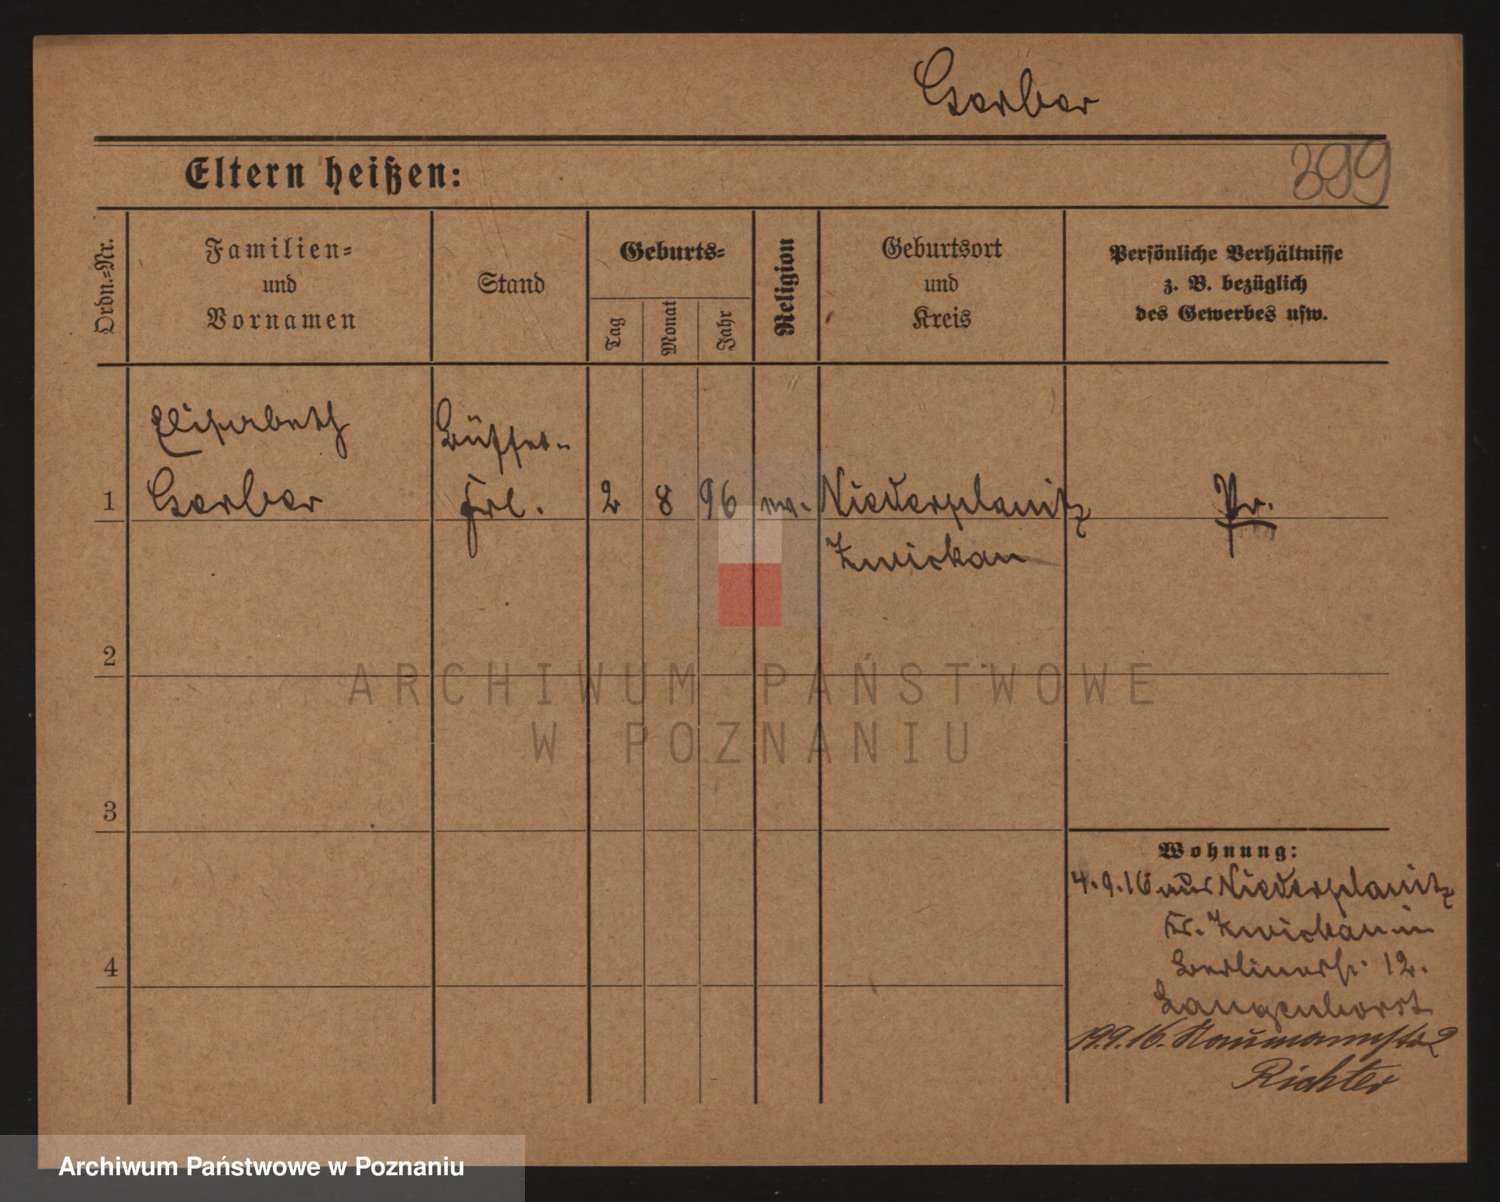 Gerber
Eltern heißen:
399
Ordn.-Nr.
Familien-
und
Vornamen
Stand
Geburts-
Tag
Monat
Jahr
Religion
Geburtsort
und
Kreis
Persönliche Verhältnisse
z. B. bezüglich
des Gewerbes usw.
Elisabeth
Büffet-
1 Gerber Frl. 2 8 96 Niederplanitz Pr.
Zwickau
2
3
4
Wohnung:
4.9.16 aus Niederplanitz
Kr. Zwickau in
Berlinerstr. 12.
Langenhorst
19.9.16. Naumannstr 2
Richter
ARCHIWUM PAŃSTWOWE
W POZNANIU
Archiwum Państwowe w Poznaniu